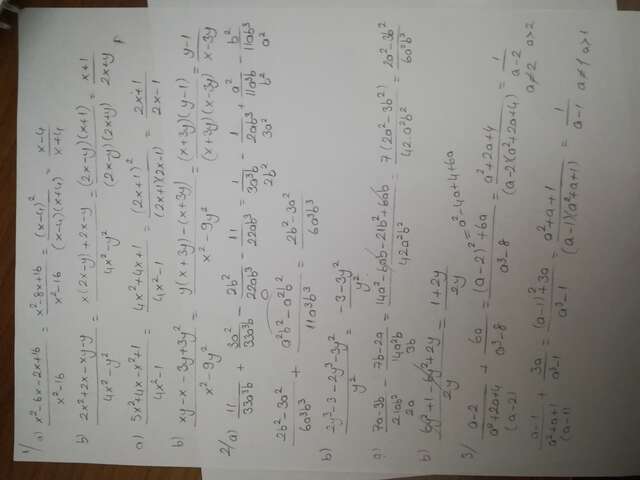 1/
a) x²-6x-2x+16 / x²-16 = x²-8x+16 / x²-16 = (x-4)² / (x-4)(x+4) = x-4 / x+4
b) 2x²+2x-xy-y / 4x²-y² = x(2x-y)+2x-y / 4x²-y² = (2x-y)(x+1) / (2x-y)(2x+y) = x+1 / 2x+y
a) 5x²+4x-x²+1 / 4x²-1 = 4x²+4x+1 / 4x²-1 = (2x+1)² / (2x+1)(2x-1) = 2x+1 / 2x-1
b) xy-x-3y+3y² / x²-9y² = y(x+3y)-(x+3y) / x²-9y² = (x+3y)(y-1) / (x+3y)(x-3y) = y-1 / x-3y
2/a) 11 / 33a³b + 3a² / 33a³b - 2b² / 22ab³ - 11 / 22ab³ = 1 / 3a³b - 1 / 2ab³ + 1 / 11a³b - 1 / 11ab³
2b² 3a² b² a²
2b²-3a² / 6a³b³ + a²b²-a²b² / 11a³b³ = 2b²-3a² / 6a³b³
b) 2y³-3-2y³-3y² / y² = -3-3y² / y²
a) 7a-3b / 21ab² - 7b-2a / 14a²b = 14a²-6ab-21b²+6ab / 42a²b² = 7(2a²-3b²) / 42a²b² = 2a²-3b² / 6a²b²
2a 3b
b) 6y²+1-6y²+2y / 2y = 1+2y / 2y
3/ a-2 / a²+2a+4 + 6a / a³-8 = (a-2)²+6a / a³-8 = a²+2a+4 / (a-2)(a²+2a+4) = 1 / a-2
(a-2) = a²-4a+4+6a a≠2 a>2
a-1 / a²+a+1 + 3a / a³-1 = (a-1)²+3a / a³-1 = a²+a+1 / (a-1)(a²+a+1) = 1 / a-1
(a-1) a≠1 a>1